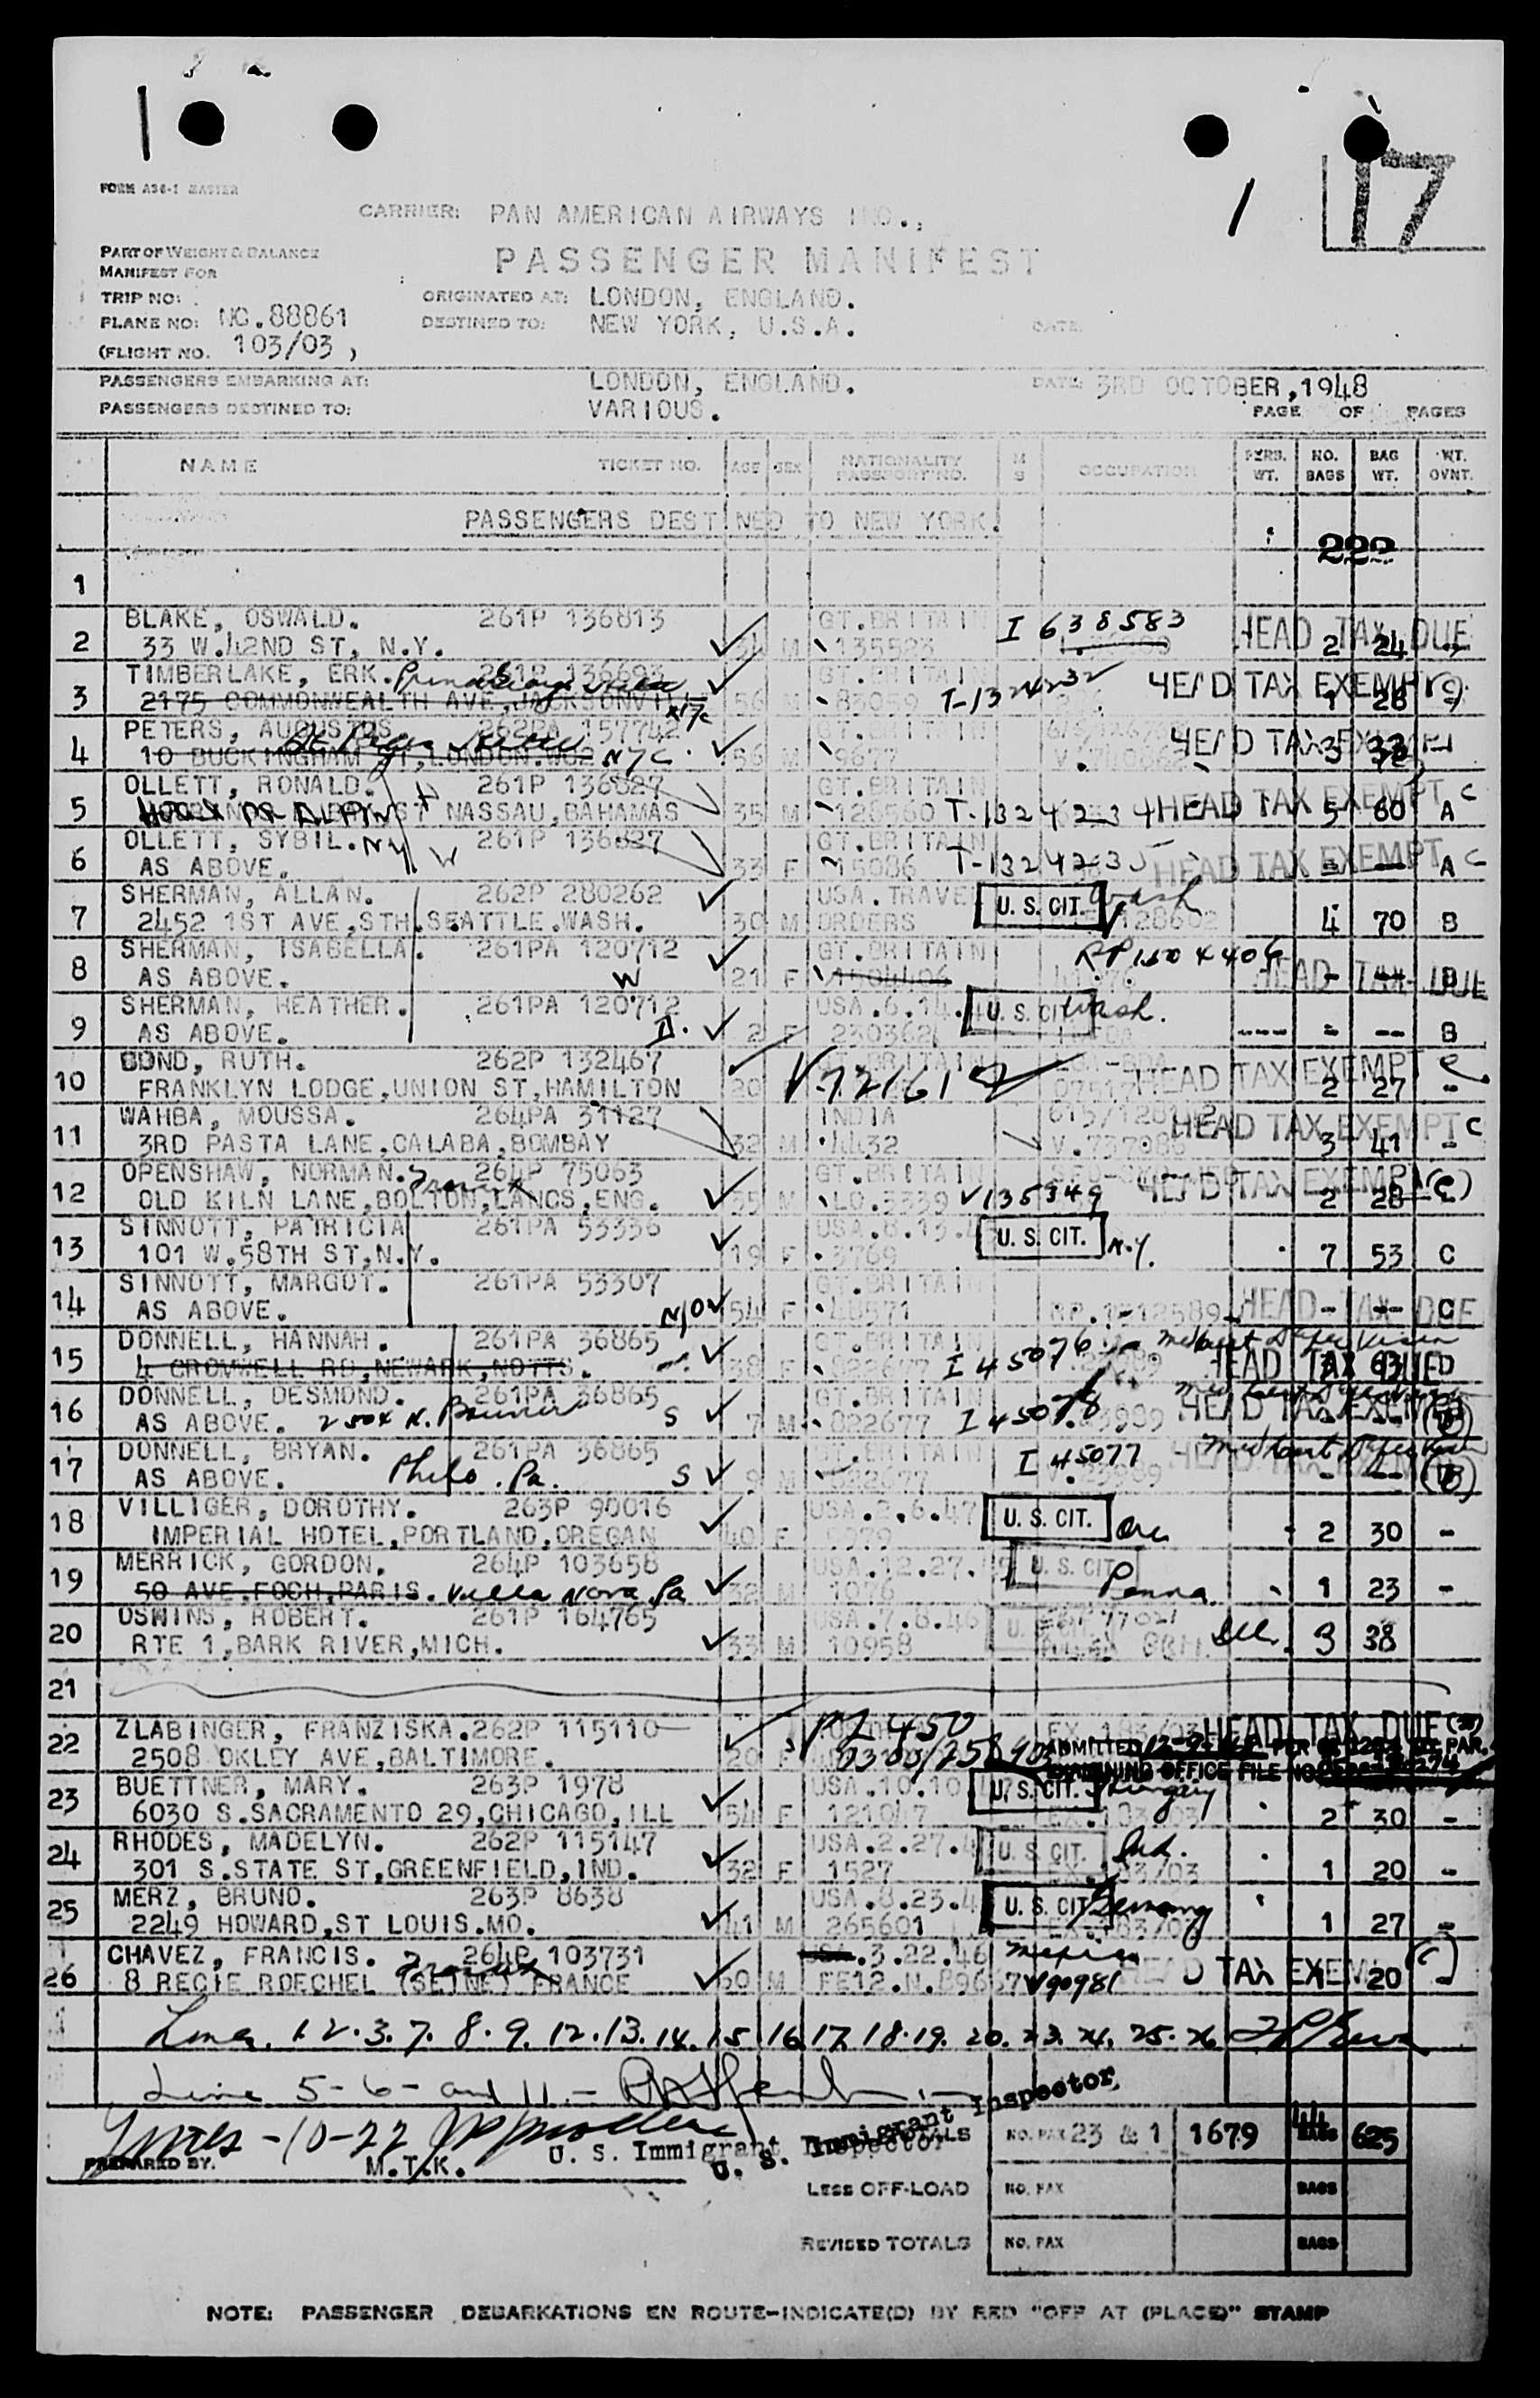 17
FORM A36-1 MASTER
CARRIER: PAN AMERICAN AIRWAYS INC.,
PART OF WEIGHT & BALANCE
MANIFEST FOR
PASSENGER MANIFEST
TRIP NO:
ORIGINATED AT: LONDON, ENGLAND.
PLANE NO: NC.88861
DESTINED TO: NEW YORK, U.S.A.
DATE:
(FLIGHT NO. 103/03 )
PASSENGERS EMBARKING AT: LONDON, ENGLAND. DATE: 3RD OCTOBER,1948
PASSENGERS DESTINED TO: VARIOUS. PAGE OF PAGES
NAME TICKET NO. AGE SEX NATIONALITY PASSPORT NO. M S OCCUPATION PERS. WT. NO. BAGS BAG WT. WT. OVNT.
PASSENGERS DESTINED TO NEW YORK.
222
1
BLAKE, OSWALD. 261P 136813 GT.BRITAIN I 638583 HEAD TAX DUE
2 33 W.42ND ST, N.Y. 34 M 135523 2 24
TIMBERLAKE, ERK. 261P 136693 GT.BRITAIN HEAD TAX EXEMPT
3 2175 COMMONWEALTH AVE,JACKSONVILLE 56 M 83059 T-1324232 1 28
PETERS, AUGUSTUS 262PA 157742 GT.BRITAIN HEAD TAX EXEMPT
4 10 BUCKINGHAM ST,LONDON.WC2 NYC. 56 M 9677 3
OLLETT, RONALD. 261P 136827 GT.BRITAIN HEAD TAX EXEMPT C
5 ST NASSAU,BAHAMAS 35 M 126560 T-1324234 5 60 A
OLLETT, SYBIL. NY W 261P 136827 GT.BRITAIN HEAD TAX EXEMPT C
6 AS ABOVE. 33 F 15086 T-1324235 - -- A
SHERMAN, ALLAN. 262P 280262 USA. TRAVEL U. S. CIT. Wash
7 2452 1ST AVE,STH.SEATTLE.WASH. 30 M ORDERS 128602 4 70 B
SHERMAN, ISABELLA. 261PA 120712 GT.BRITAIN RP 1504406
8 AS ABOVE. W 21 F 1504406 HEAD TAX DUE - -- B
SHERMAN, HEATHER. 261PA 120712 USA.6.14. U. S. CIT. Wash.
9 AS ABOVE. D. 2 F 230362 ---- - -- B
BOND, RUTH. 262P 132467 GT.BRITAIN HEAD TAX EXEMPT C
10 FRANKLYN LODGE,UNION ST,HAMILTON 20 V-721612 2 27 -
WAHBA, MOUSSA. 264PA 31127 INDIA HEAD TAX EXEMPT C
11 3RD PASTA LANE,CALABA,BOMBAY 32 M 4432 V.737986 3 41 -
OPENSHAW, NORMAN. 264P 75063 GT.BRITAIN HEAD TAX EXEMPT (C)
12 OLD KILN LANE,BOLTON,LANCS,ENG. 35 M LO.3339 V135349 2 28
SINNOTT, PATRICIA 261PA 53336 USA.8.13. U. S. CIT. N.Y.
13 101 W.58TH ST,N.Y. 19 F 3769 7 53 C
SINNOTT, MARGOT. 261PA 53307 GT.BRITAIN HEAD TAX DUE
14 AS ABOVE. 54 F 48571 RP.1712589 - -- C
DONNELL, HANNAH. 261PA 36865 GT.BRITAIN I 45076
15 4 CROMWELL RD,NEWARK,NOTTS. 38 F 822677 HEAD TAX DUE D
DONNELL, DESMOND. 261PA 36865 GT.BRITAIN
16 AS ABOVE. S 7 M 822677 I 45078 HEAD TAX EXEMPT
DONNELL, BRYAN. 261PA 36865 GT.BRITAIN I 45077
17 AS ABOVE. Phila. Pa. S 9 M 822677 - --
VILLIGER, DOROTHY. 263P 90016 USA.2.6.47 U. S. CIT. Ore
18 IMPERIAL HOTEL,PORTLAND,OREGAN 40 F 5979 2 30 -
MERRICK, GORDON. 264P 103658 USA.12.27. U. S. CIT.
19 50 AVE.FOCH,PARIS. Villa Nova Pa 32 M 1076 Penna. 1 23 -
OSWINS, ROBERT. 261P 164765 USA.7.8.46
20 RTE 1,BARK RIVER,MICH. 33 M 10958 Ill. 3 38
21
ZLABINGER, FRANZISKA.262P 115110 EX.103/03 HEAD TAX DUE
22 2508 OKLEY AVE,BALTIMORE. 20 F ADMITTED PER PAR.
EXAMINING OFFICE FILE NO
BUETTNER, MARY. 263P 1978 USA.10.10 U. S. CIT. Hungary
23 6030 S.SACRAMENTO 29,CHICAGO,ILL 54 F 121047 EX.103/03 2 30 -
RHODES, MADELYN. 262P 115147 USA.2.27. U. S. CIT. Ind.
24 301 S.STATE ST,GREENFIELD,IND. 32 F 1527 EX.103/03 1 20 -
MERZ, BRUNO. 263P 8638 USA.8.23. U. S. CIT. Germany
25 2249 HOWARD,ST LOUIS.MO. 41 M 265601 EX.103/03 1 27 -
CHAVEZ, FRANCIS. 264P 103731 USA.3.22.46 Mexico (C)
26 8 RECIE ROECHEL (SEINE) FRANCE M FE12.N.89667 V90981 HEAD TAX EXEMPT 1 20 -
Lines. 1.2.3.7.8.9.12.13.14.15 16 17 18.19.20.23.24.25.26
Line 5-6- and 11.-
Lines -10-22
U. S. Immigrant Inspector
U. S. Immigrant Inspector
PREPARED BY. M.T.K. TOTALS NO. PAX 23 & 1 1679 44 BAGS 625
LESS OFF-LOAD NO. PAX BAGS
REVISED TOTALS NO. PAX BAGS
NOTE: PASSENGER DEBARKATIONS EN ROUTE-INDICATE(D) BY RED "OFF AT (PLACE)" STAMP